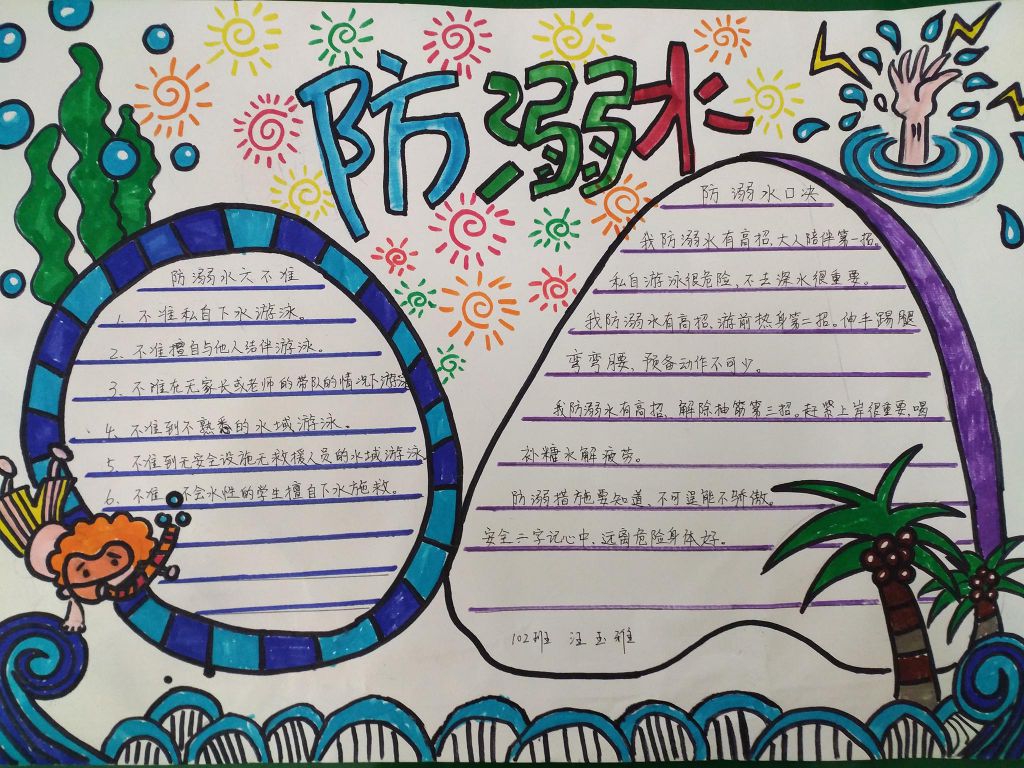 防溺水
防溺水六不准
1、不准私自下水游泳。
2、不准擅自与他人结伴游泳。
3、不准在无家长或老师的带队的情况下游泳
4、不准到不熟悉的水域游泳。
5、不准到无安全设施无救援人员的水域游泳
6、不准不会水性的学生擅自下水施救。
防溺水口决
我防溺水有高招、大人陪伴第一招。
私自游泳很危险、不去深水很重要。
我防溺水有高招、游前热身第二招。伸手踢腿
弯弯腰、预备动作不可少。
我防溺水有高招、解除抽筋第三招。赶紧上岸很重要、喝
补糖水解疲劳。
防溺措施要知道、不可逞能不骄傲。
安全二字记心中、远离危险身体好。
102班 汪玉雅